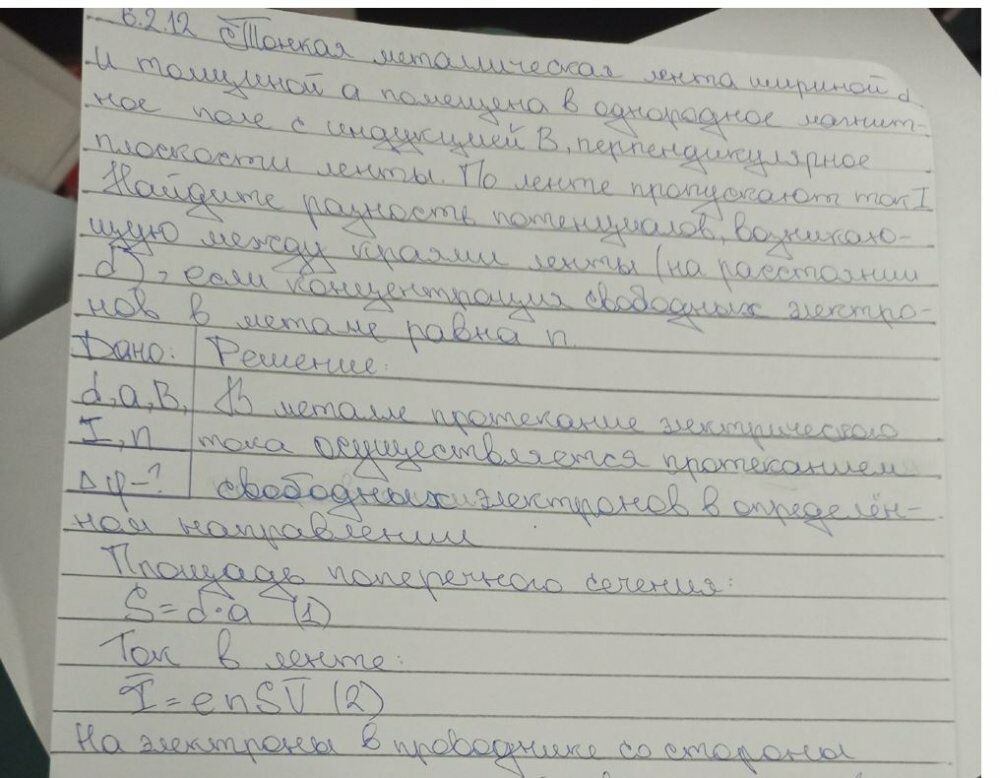 6.2.12 Тонкая металлическая лента шириной d
и толщиной a помещена в однородное магнит-
ное поле с индукцией B, перпендикулярное
плоскости ленты. По ленте пропускают ток I
Найдите разность потенциалов, возникаю-
щую между краями ленты (на расстоянии
d), если концентрация свободных электро-
нов в металле равна n.
Дано: Решение:
d, a, B, В металле протекание электрического
I, n тока осуществляется протеканием
Δφ-? свободных электронов в определён-
ном направлении
Площадь поперечного сечения:
S = d·a (1)
Ток в ленте:
I = enSV (2)
На электроны в проводнике со стороны